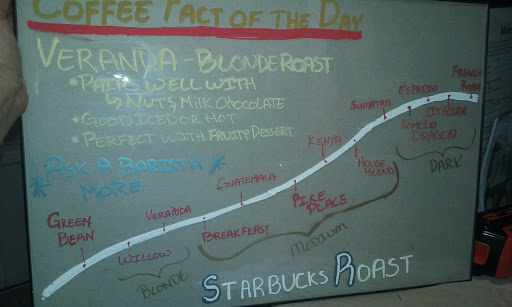 COFFEE FACT OF THE DAY
VERANDA - BLONDE ROAST
• PAIRS WELL WITH
↳ NUTS, MILK CHOCOLATE
• GOOD ICED OR HOT
• PERFECT WITH FRUITY DESSERT
* ASK A BARISTA *
MORE
GREEN
BEAN
WILLOW
VERANDA
BLONDE
BREAKFAST
GUATEMALA
PIKE
PLACE
KENYA
HOUSE
BLEND
MEDIUM
SUMATRA
KOMODO
DRAGON
ESPRESSO
ITALIAN
FRENCH
ROAST
DARK
STARBUCKS ROAST